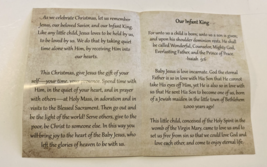 As we celebrate Christmas, let us remember
Jesus, our beloved Savior, and our Infant King.
Like any little child, Jesus loves to be held by us,
to be loved by us. We do that by taking quiet
time alone with Him, by receiving Him into
our hearts.
This Christmas, give Jesus the gift of your
time with
Him, in the quiet of your heart, and in prayer
with others—at Holy Mass, in adoration and in
visits to the Blessed Sacrament. Then go out and
be the light of the world! Serve others, give to the
poor, be Christ to someone else. In this way you
will bring joy to the heart of the Baby Jesus, who
left the glories of heaven to be with us.
Our Infant King
For unto us a child is born, unto us a son is given,
and upon his shoulder dominion rests. He shall
be called Wonderful, Counselor, Mighty God,
Everlasting Father, and the Prince of Peace.
Isaiah 9:6
Baby Jesus is love incarnate. God the eternal
Father is so in love with His Son that He cannot
take His eyes off Him, yet He is also so in love with
us that He sent His Son to become one of us, born
of a Jewish maiden in the little town of Bethlehem
2,000 years ago!
This little child, conceived of the Holy Spirit in the
womb of the Virgin Mary, came to love us and to
set us free from sin so that we could love God and
love each other, and come to enjoy eternal life.